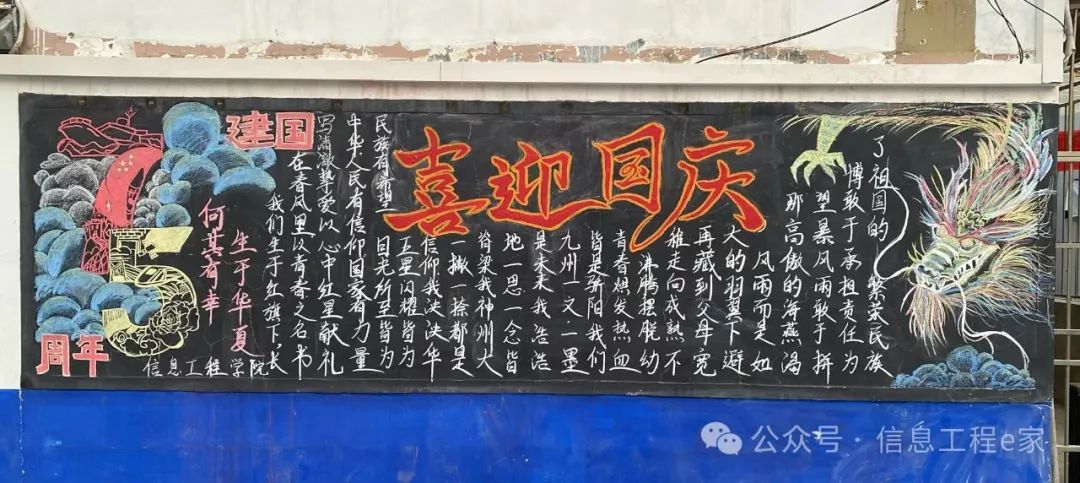 喜迎国庆
建国
75
周年
何其有幸
生于华夏
信息工程学院
我们生于红旗下,长
在春风里以青春之名书
写满激挚爱以心中红星献礼
中华人民有信仰国家有力量
民族有希望
目光所至皆为
五星闪耀皆为
信仰我泱泱华
一撇一捺都是
脊梁我神州大
地一思一念皆
是未来我浩浩
九州一文一墨
皆是骄阳我们
青春烘发热血
沸腾摆脱幼
稚走向成熟不
再藏到父母宽
大的羽翼下避
风雨而是如
那高傲的海燕渴
望暴风雨敢于拼
搏敢于承担责任为
了祖国的繁荣民族
公众号·信息工程e家